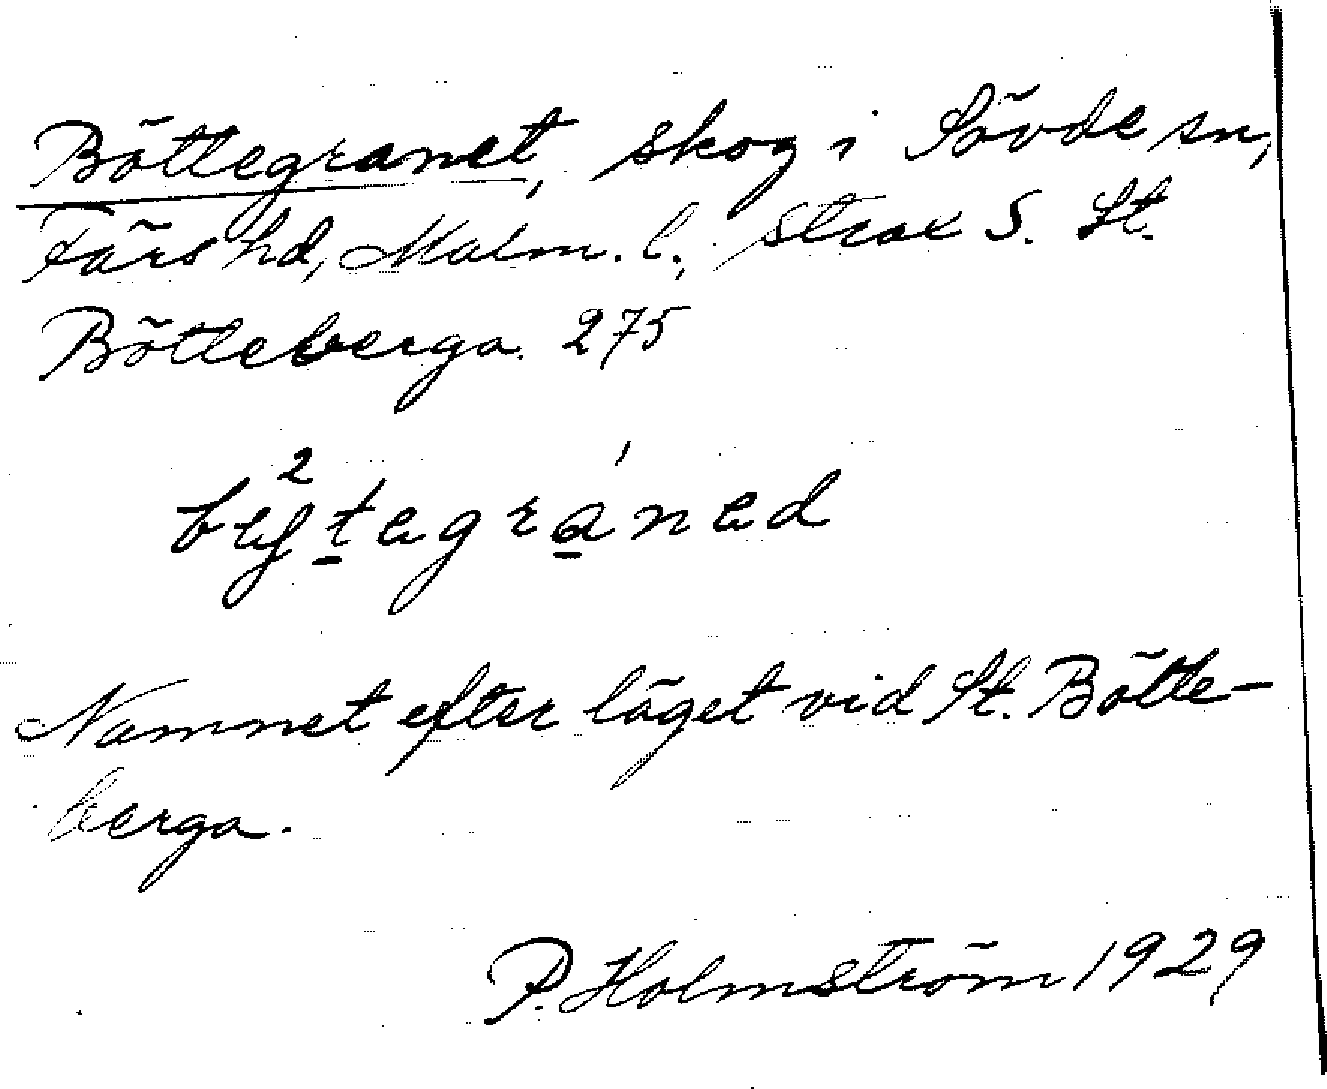 Böttegranet, skog i Sövde sn,
Färs hd, Malm. l., strax S. St.
Bötteberga. 275
Namnet efter läget vid St. Bötte-
berga.
P. Holmström 1929